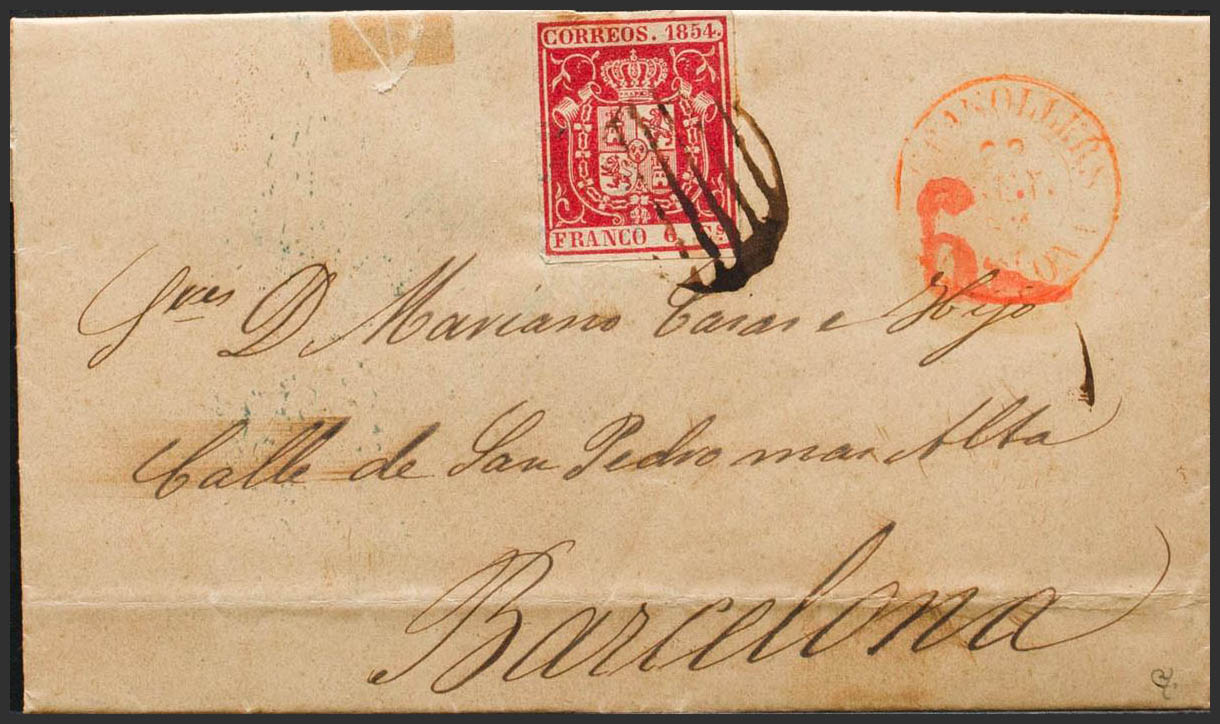 CORREOS. 1854.
FRANCO 6 Cs
Sres D Mariano Casas e Hijo
Calle de San Pedro mas Alta
Barcelona